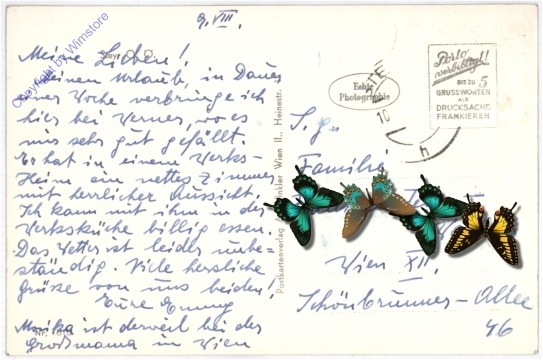 9. VIII.
Steyr, O. Ö.
Meine Lieben!
Meinen Urlaub, in Dauer
einer Woche verbringe ich
hier bei Werner, wo es
mir sehr gut gefällt.
Er hat in einem Werks-
Heim ein nettes Zimmer
mit herrlicher Aussicht.
Ich kann mit ihm in der
Werksküche billig essen.
Das Wetter ist leider unbe-
ständig. Viele herzliche
Grüsse von uns beiden!
Eure
Monika ist derweil bei der
Grossmama in Wien
Copyright by Wimstore
Postkartenverlag Winkler Wien II., Heinestr.
Echte
Photographie
Porto
verbilligt!!
BIS ZU 5
GRUSSWORTEN
ALS
DRUCKSACHE
FRANKIEREN
S. g.
Familie
Wien XII.
Schönbrunner-Allee
46